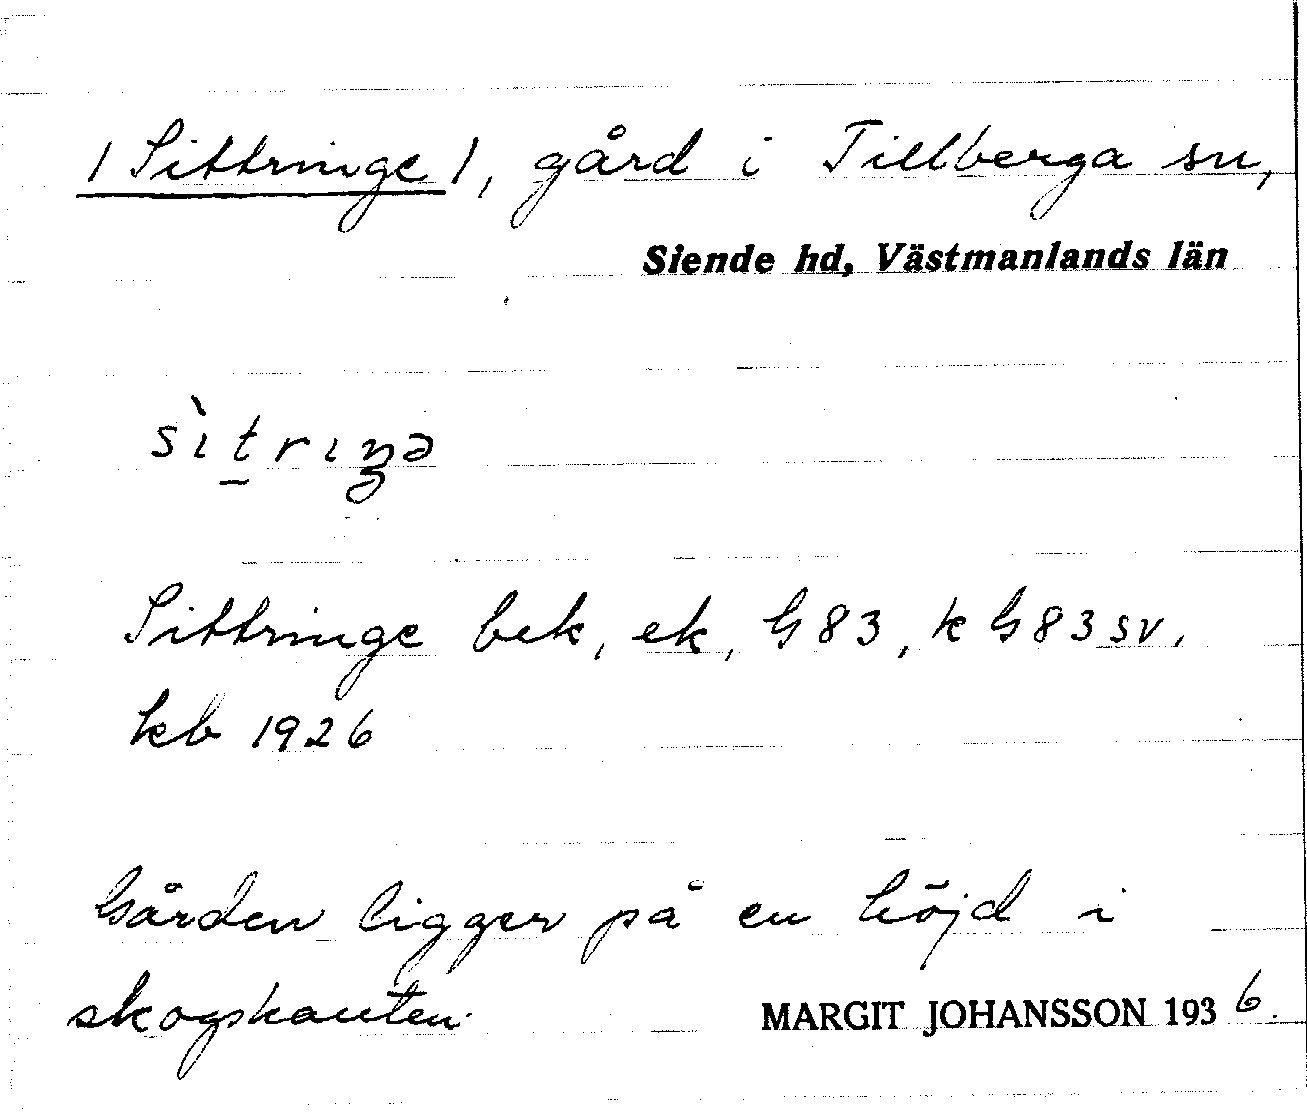 /Sittringe/, gård i Tillberga sn,
Siende hd, Västmanlands län
sìt̠rıŋə
Sittringe bek, ek, G 83, k G 83 sv,
kb 1926
Gården ligger på en höjd i
skogskanten.
MARGIT JOHANSSON 1936.